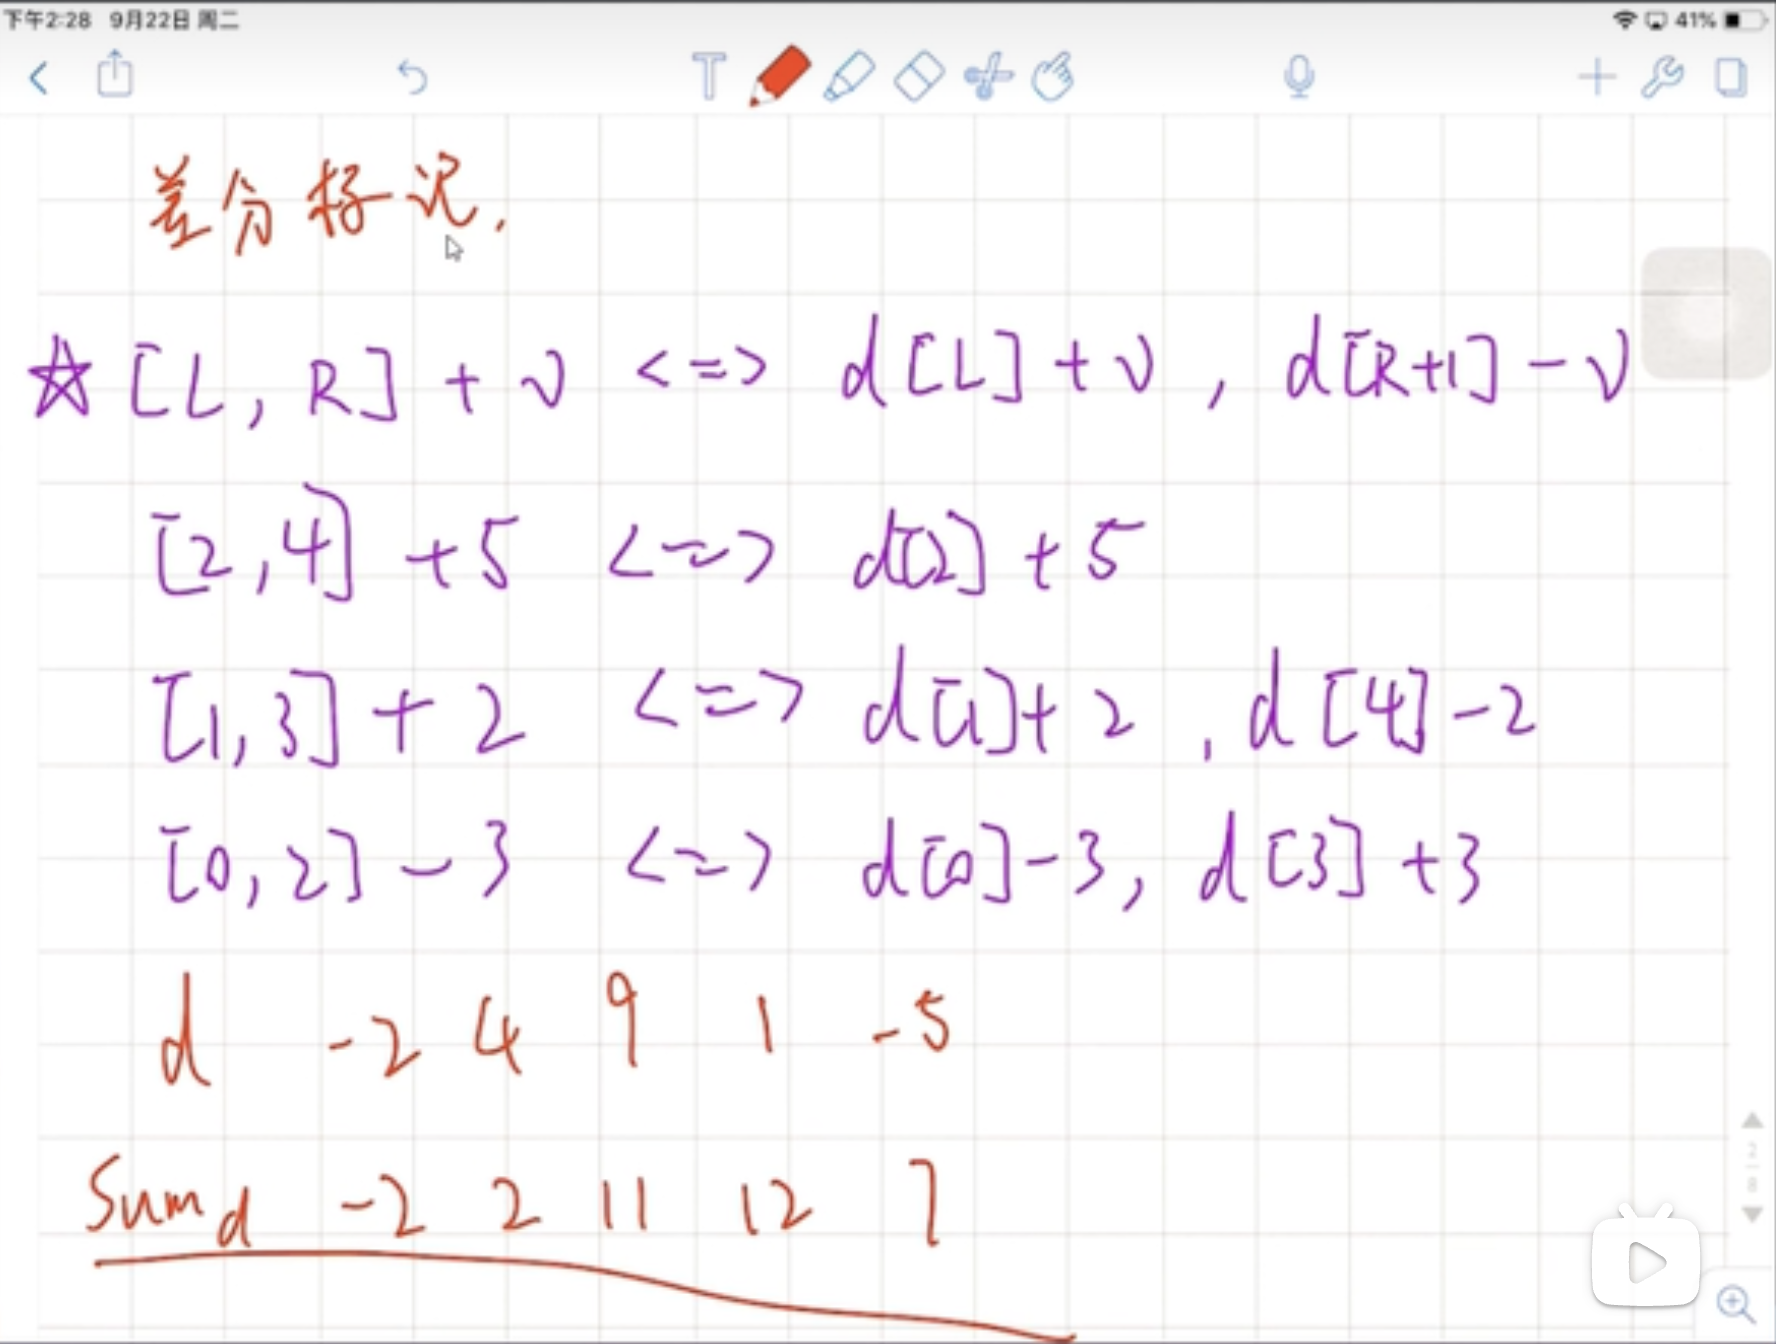 下午2:28 9月22日 周二 41%
差分标记.
☆ [L, R] + v <=> d[L] + v , d[R+1] - v
[2,4] + 5 <=> d[2] + 5
[1,3] + 2 <=> d[1] + 2 , d[4] - 2
[0,2] - 3 <=> d[0] - 3, d[3] + 3
d -2 4 9 1 -5
Sum d -2 2 11 12 7
2
8